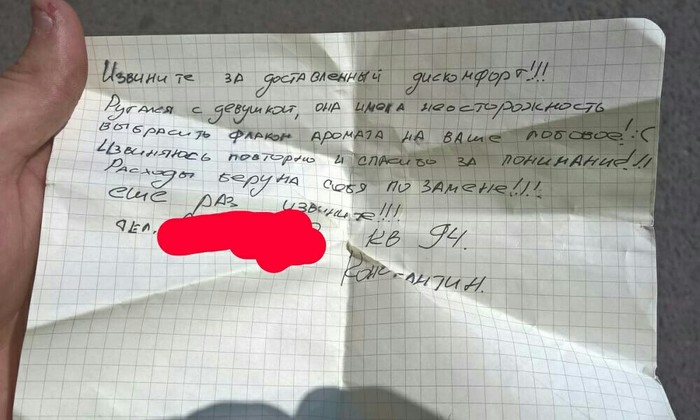 Извините за доставленный дискомфорт!!!
Ругался с девушкой, она имела неосторожность
выбросить флакон аромата на ваше лобовое! :(
Извиняюсь повторно и спасибо за понимание!!!
Расходы беру на себя по замене!!!
еще раз извините!!!
тел.
кв 94.
Константин.